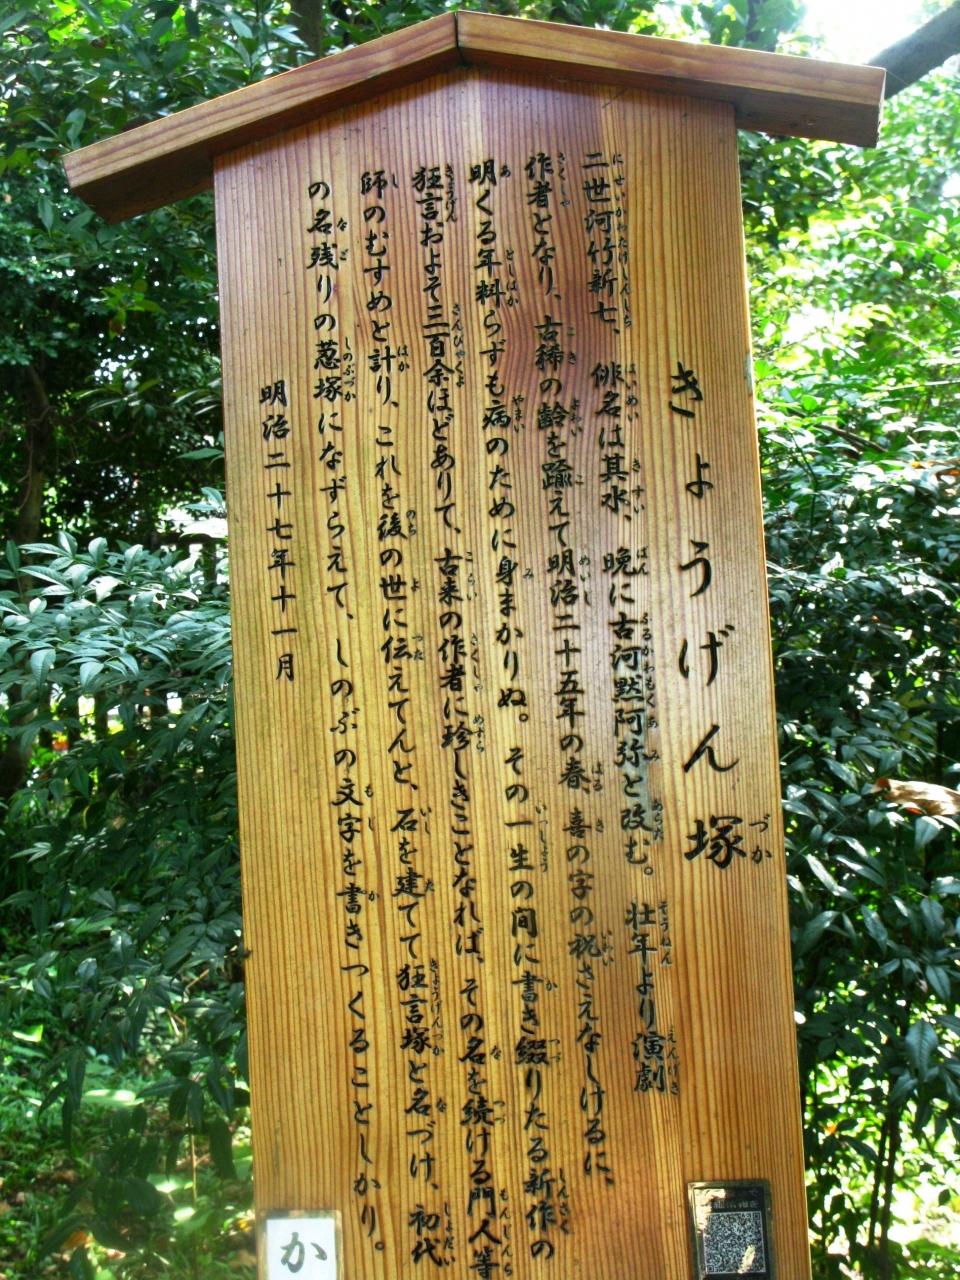 きょうげん塚
二世河竹新七、俳名は其水、晩に古河黙阿弥と改む。壮年より演劇
作者となり、古稀の齢を踰えて明治二十五年の春、喜の字の祝さえなしけるに、
明くる年料らずも病のために身まかりぬ。その一生の間に書き綴りたる新作の
狂言およそ三百余ほどありて、古来の作者に珍しきことなれば、その名を続ける門人等
師のむすめと計り、これを後の世に伝えてんと、石を建てて狂言塚と名づけ、初代
の名残りの葱塚になずらえて、しのぶの文字を書きつくることしかり。
明治二十七年十一月
か